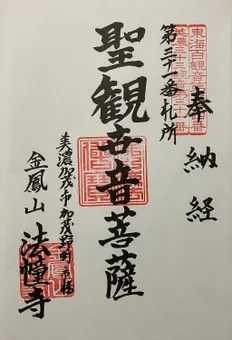 奉納経
第三十一番札所
聖観世音菩薩
美濃加茂市加茂野町市橋
金鳳山 法幢寺